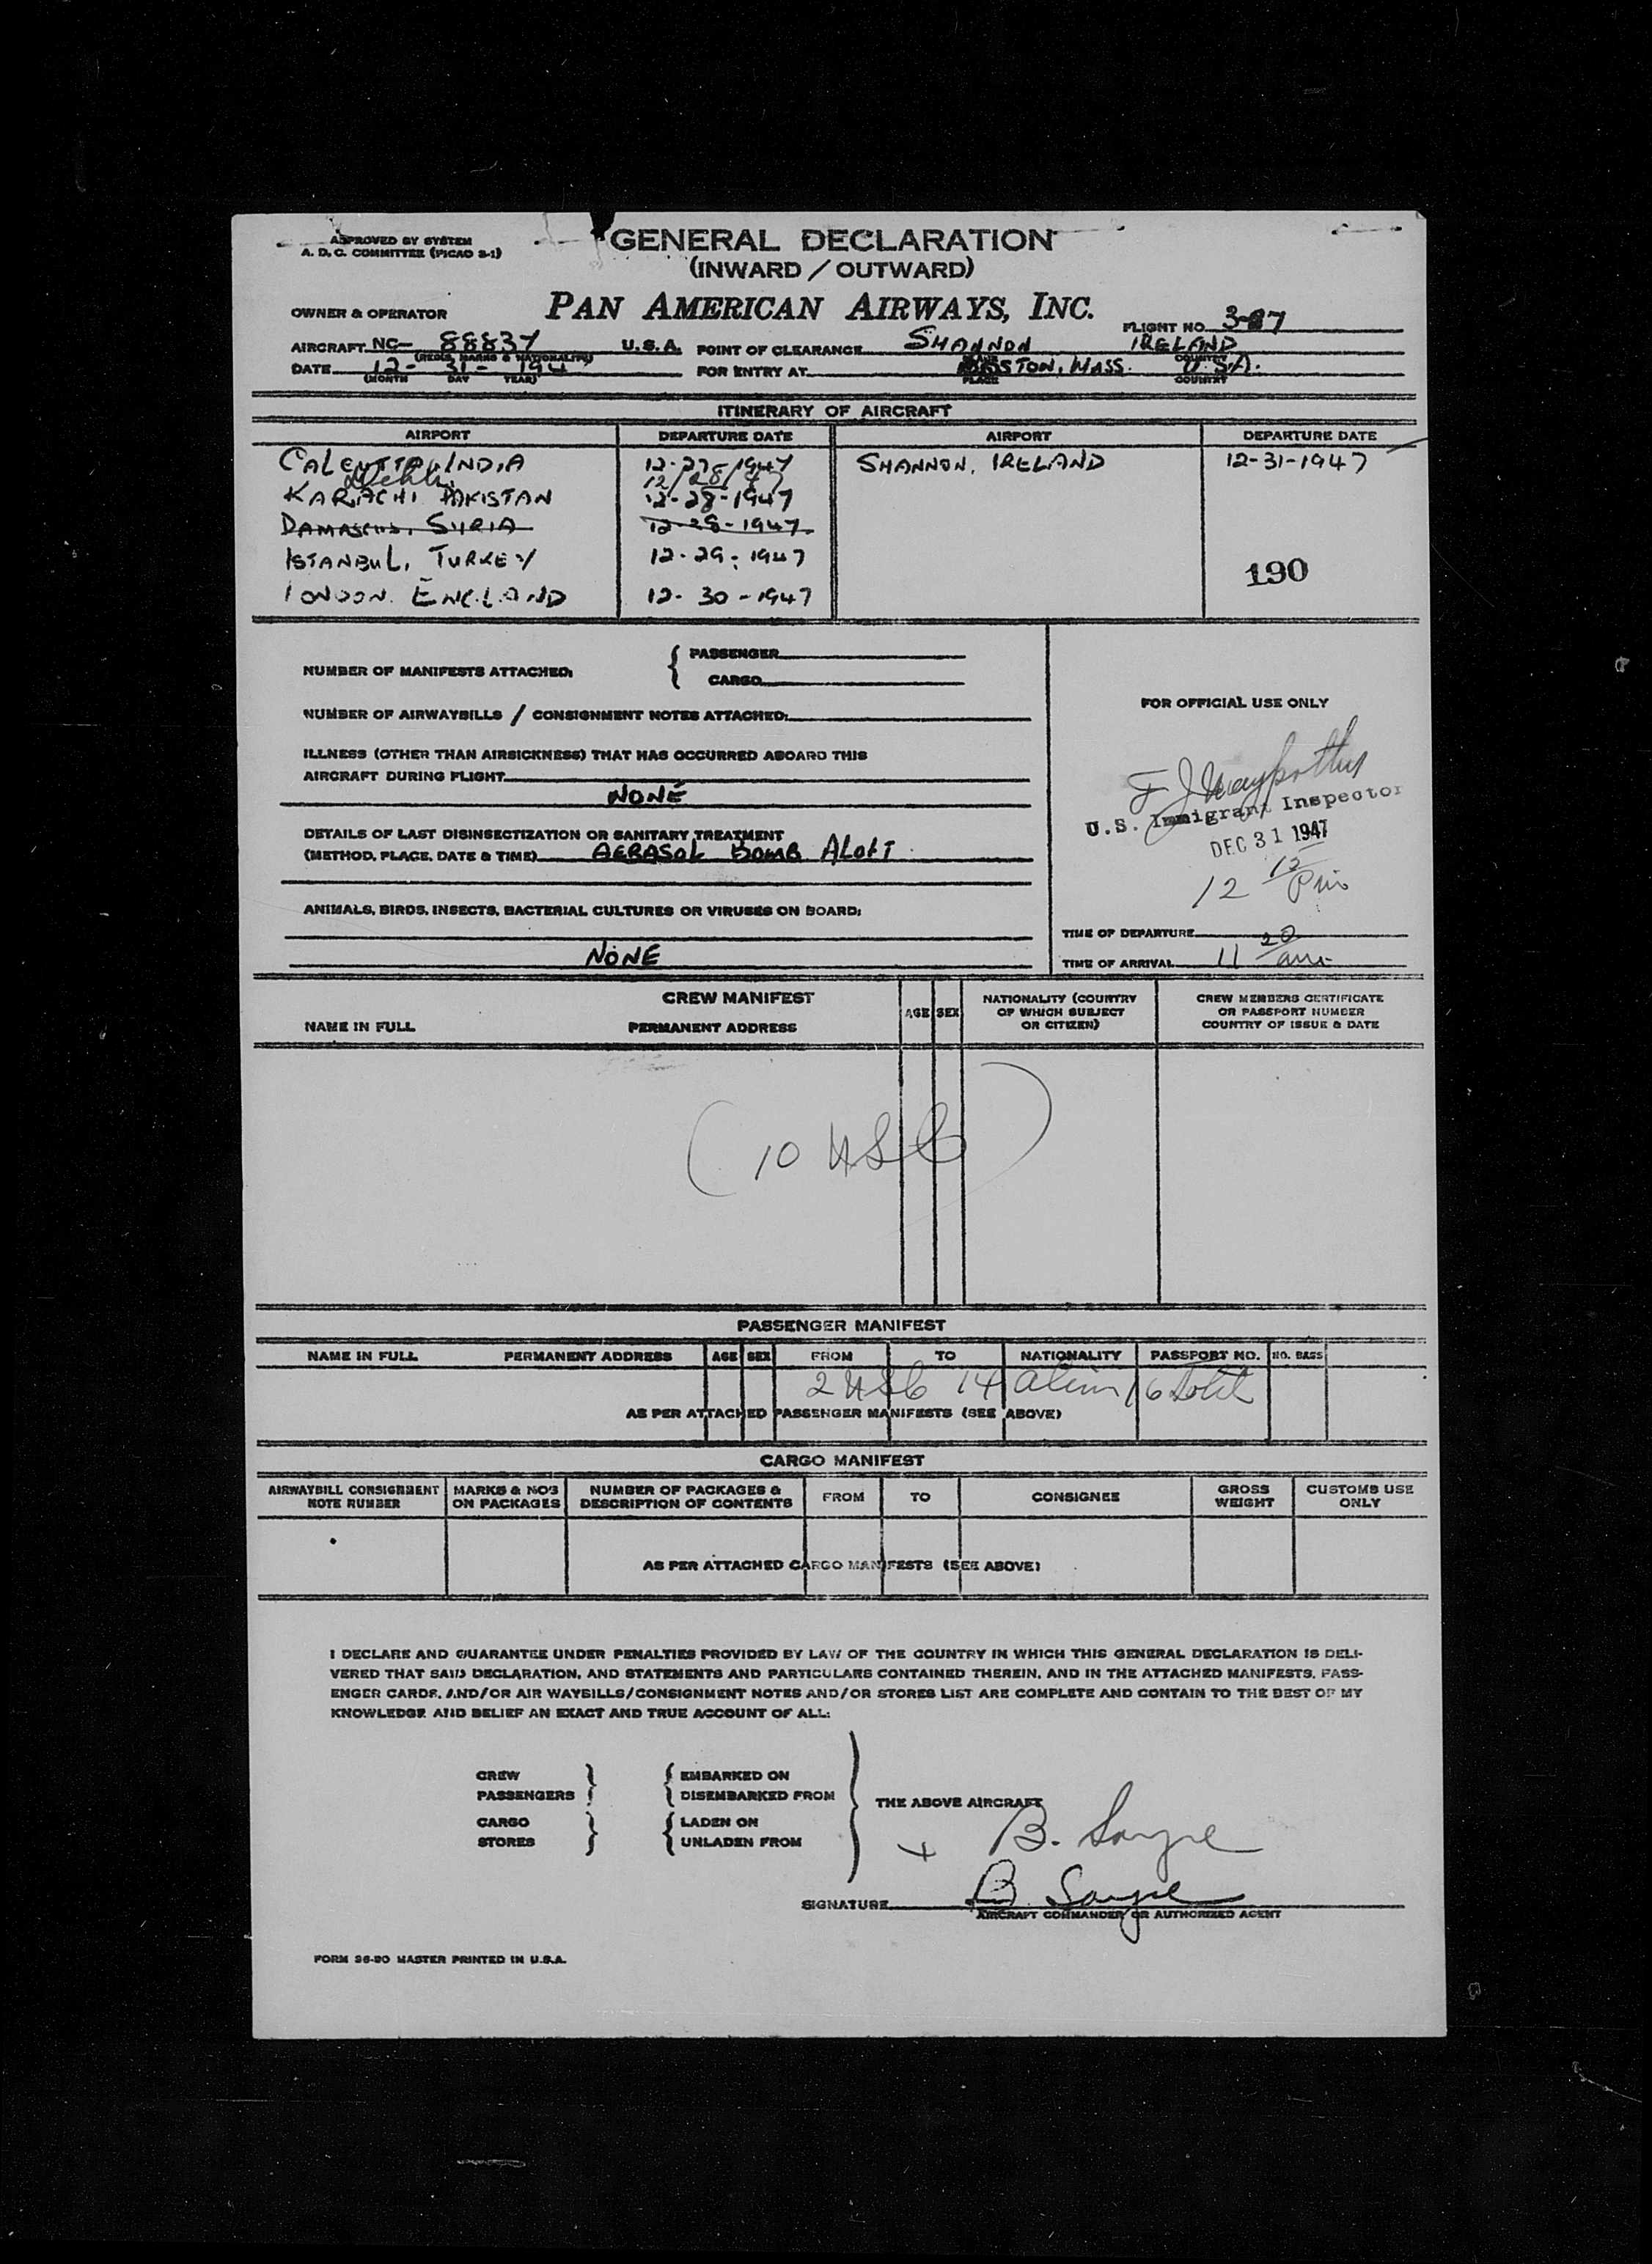 APPROVED BY SYSTEM
A. D. C. COMMITTEE (PICAO S-1)
GENERAL DECLARATION
(INWARD / OUTWARD)
OWNER & OPERATOR PAN AMERICAN AIRWAYS, INC.
FLIGHT NO.
AIRCRAFT NC- 88837 U.S.A. POINT OF CLEARANCE SHANNON IRELAND
(REGIS. MARKS & NATIONALITY) PLACE COUNTRY
DATE 12- 31- 194 FOR ENTRY AT BOSTON, MASS. U.S.A.
(MONTH DAY YEAR) PLACE COUNTRY
ITINERARY OF AIRCRAFT
AIRPORT DEPARTURE DATE AIRPORT DEPARTURE DATE
CALCUTTA, INDIA 12-27-1947 SHANNON, IRELAND 12-31-1947
Delhi 12/28/47
KARACHI PAKISTAN 12-28-1947
DAMASCUS, SYRIA 12-28-1947
ISTANBUL, TURKEY 12-29-1947
LONDON. ENGLAND 12-30-1947
190
NUMBER OF MANIFESTS ATTACHED: { PASSENGER
CARGO
NUMBER OF AIRWAYBILLS / CONSIGNMENT NOTES ATTACHED:
ILLNESS (OTHER THAN AIRSICKNESS) THAT HAS OCCURRED ABOARD THIS
AIRCRAFT DURING FLIGHT
NONE
DETAILS OF LAST DISINSECTIZATION OR SANITARY TREATMENT
(METHOD, PLACE, DATE & TIME) AERASOL BOMB ALOFT
ANIMALS, BIRDS, INSECTS, BACTERIAL CULTURES OR VIRUSES ON BOARD:
NONE
FOR OFFICIAL USE ONLY
F J
U.S. Immigrant Inspector
DEC 31 1947
12 12 Pm
TIME OF DEPARTURE
TIME OF ARRIVAL 11 20 am
CREW MANIFEST
NAME IN FULL PERMANENT ADDRESS AGE SEX NATIONALITY (COUNTRY OF WHICH SUBJECT OR CITIZEN) CREW MEMBERS CERTIFICATE OR PASSPORT NUMBER COUNTRY OF ISSUE & DATE
(10 USC)
PASSENGER MANIFEST
NAME IN FULL PERMANENT ADDRESS AGE SEX FROM TO NATIONALITY PASSPORT NO. NO. BAGS
2 USC 14 alien 16 total
AS PER ATTACHED PASSENGER MANIFESTS (SEE ABOVE)
CARGO MANIFEST
AIRWAYBILL CONSIGNMENT NOTE NUMBER MARKS & NO'S ON PACKAGES NUMBER OF PACKAGES & DESCRIPTION OF CONTENTS FROM TO CONSIGNEE GROSS WEIGHT CUSTOMS USE ONLY
AS PER ATTACHED CARGO MANIFESTS (SEE ABOVE)
I DECLARE AND GUARANTEE UNDER PENALTIES PROVIDED BY LAW OF THE COUNTRY IN WHICH THIS GENERAL DECLARATION IS DELI-
VERED THAT SAID DECLARATION, AND STATEMENTS AND PARTICULARS CONTAINED THEREIN, AND IN THE ATTACHED MANIFESTS, PASS-
ENGER CARDS, AND/OR AIR WAYBILLS/CONSIGNMENT NOTES AND/OR STORES LIST ARE COMPLETE AND CONTAIN TO THE BEST OF MY
KNOWLEDGE AND BELIEF AN EXACT AND TRUE ACCOUNT OF ALL:
CREW } { EMBARKED ON
PASSENGERS } { DISEMBARKED FROM
THE ABOVE AIRCRAFT
CARGO } { LADEN ON
STORES } { UNLADEN FROM
B. Sayre
SIGNATURE B Sayre
AIRCRAFT COMMANDER OR AUTHORIZED AGENT
FORM 26-20 MASTER PRINTED IN U.S.A.